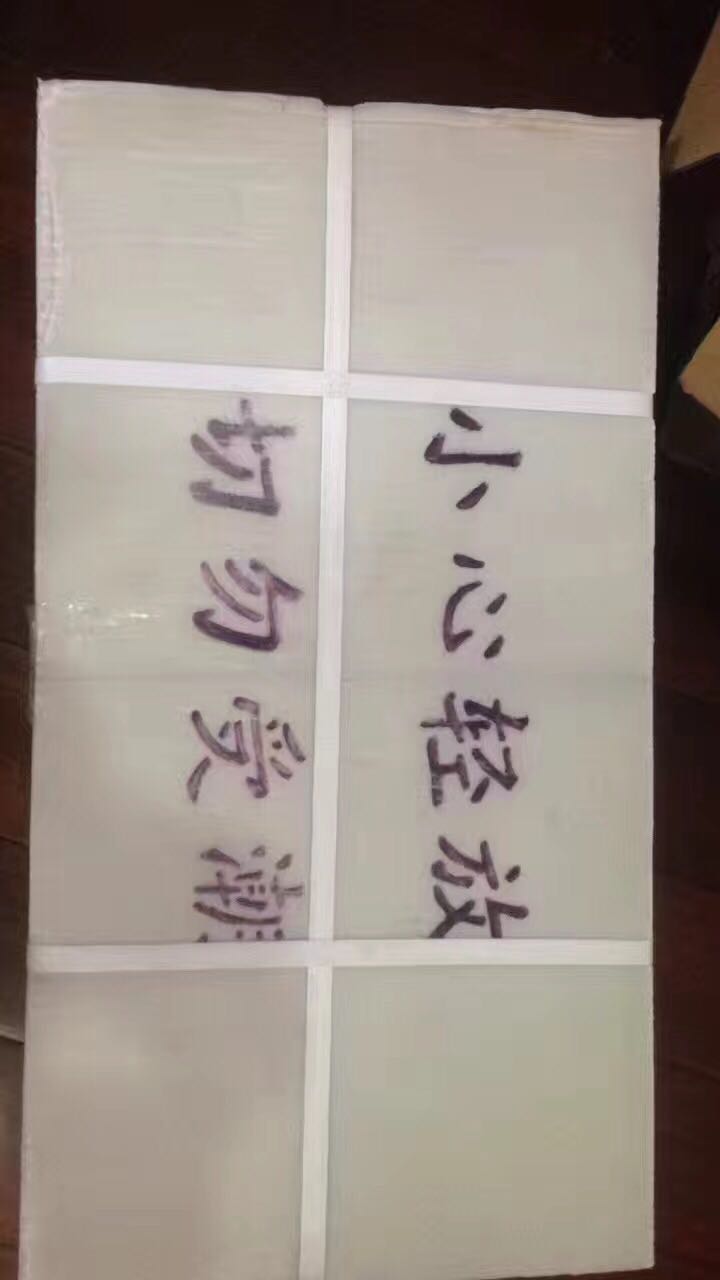 小心轻放
切勿受潮